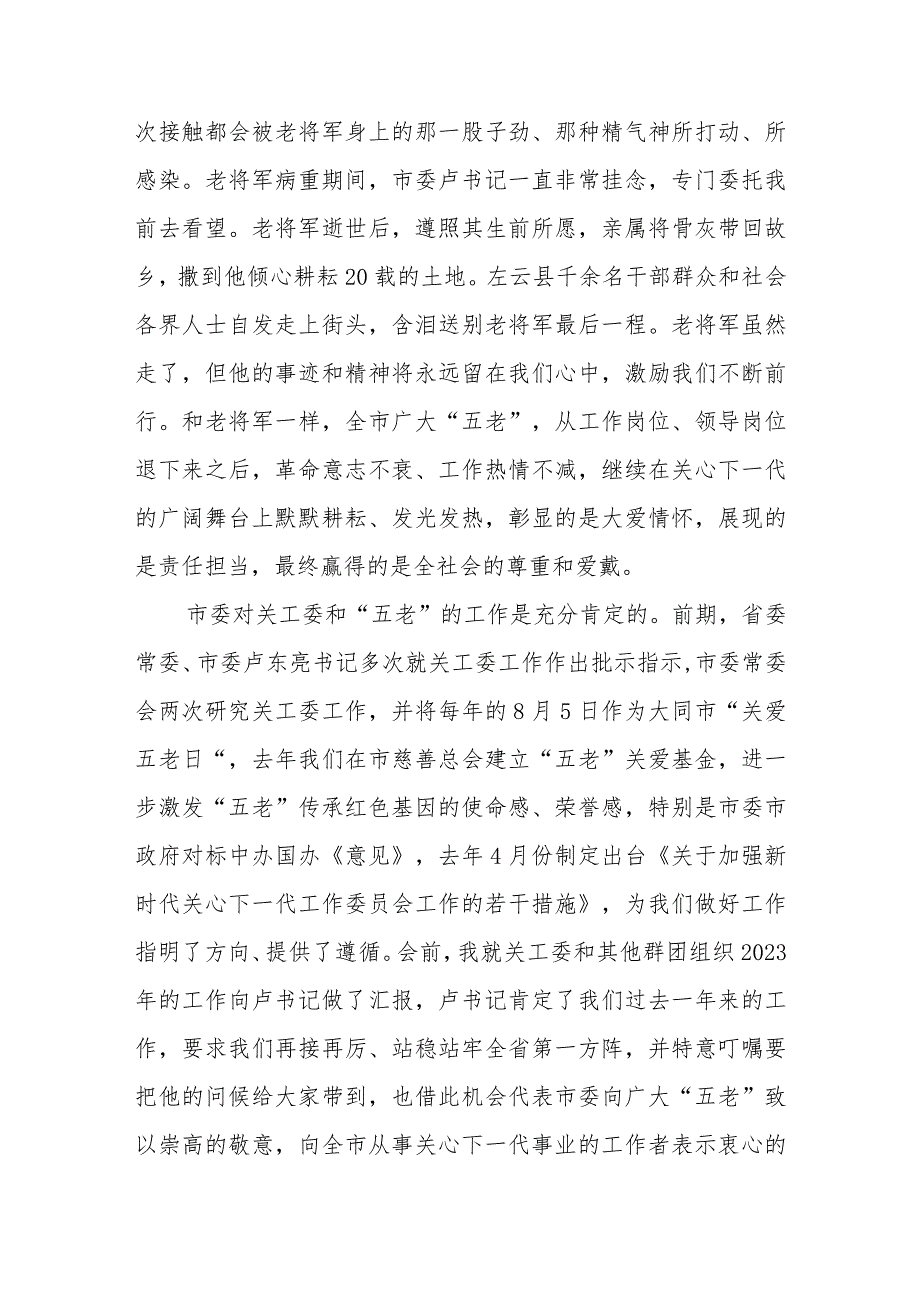 次接触都会被老将军身上的那一股子劲、那种精气神所打动、所
感染。老将军病重期间，市委卢书记一直非常挂念，专门委托我
前去看望。老将军逝世后，遵照其生前所愿，亲属将骨灰带回故
乡，撒到他倾心耕耘20载的土地。左云县千余名干部群众和社会
各界人士自发走上街头，含泪送别老将军最后一程。老将军虽然
走了，但他的事迹和精神将永远留在我们心中，激励我们不断前
行。和老将军一样，全市广大“五老”，从工作岗位、领导岗位
退下来之后，革命意志不衰、工作热情不减，继续在关心下一代
的广阔舞台上默默耕耘、发光发热，彰显的是大爱情怀，展现的
是责任担当，最终赢得的是全社会的尊重和爱戴。
市委对关工委和“五老”的工作是充分肯定的。前期，省委
常委、市委卢东亮书记多次就关工委工作作出批示指示,市委常委
会两次研究关工委工作，并将每年的8月5日作为大同市“关爱
五老日“，去年我们在市慈善总会建立“五老”关爱基金，进一
步激发“五老”传承红色基因的使命感、荣誉感，特别是市委市
政府对标中办国办《意见》，去年4月份制定出台《关于加强新
时代关心下一代工作委员会工作的若干措施》，为我们做好工作
指明了方向、提供了遵循。会前，我就关工委和其他群团组织2023
年的工作向卢书记做了汇报，卢书记肯定了我们过去一年来的工
作，要求我们再接再厉、站稳站牢全省第一方阵，并特意叮嘱要
把他的问候给大家带到，也借此机会代表市委向广大“五老”致
以崇高的敬意，向全市从事关心下一代事业的工作者表示衷心的